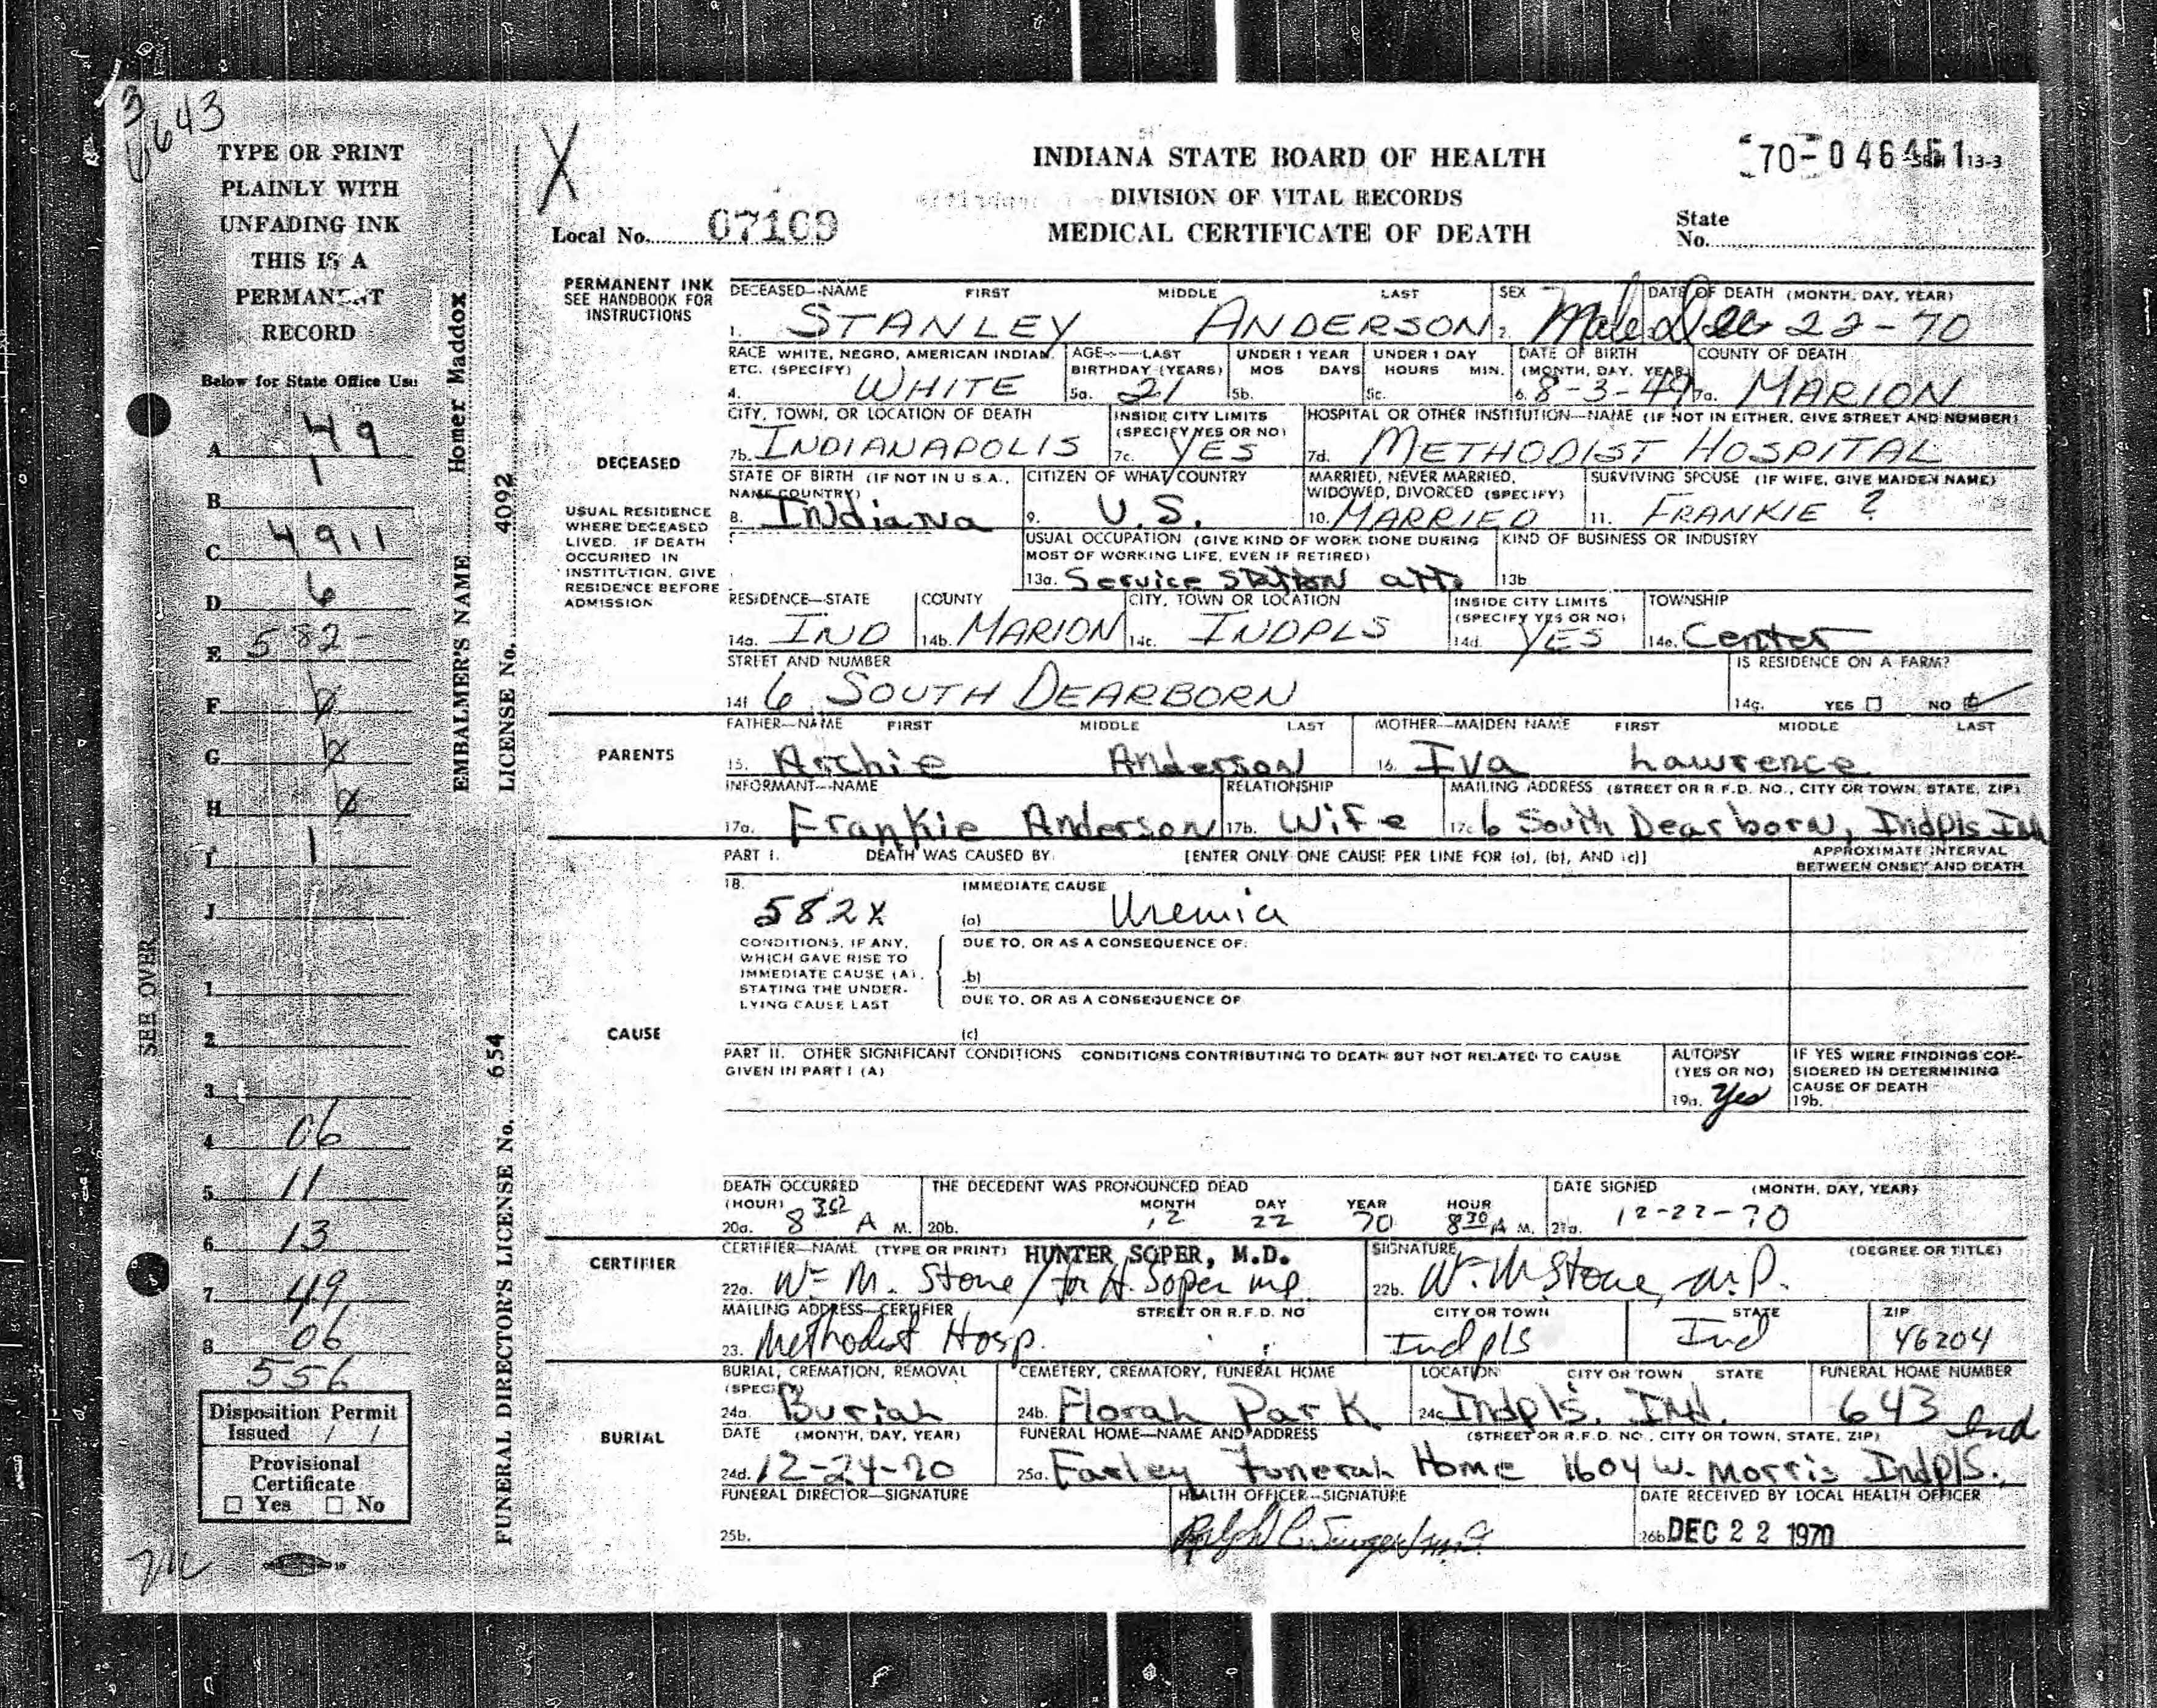 643
TYPE OR PRINT
PLAINLY WITH
UNFADING INK
THIS IS A
PERMANENT
RECORD
Below for State Office Use
A 49
B 1
C 4911
D 6
E 582-
F
G
H
I 1
J
1
2
3
4 06
5 11
6 13
7 49
8 06
556
Disposition Permit
Issued / /
Provisional
Certificate
☐ Yes ☐ No
SEE OVER
EMBALMER'S NAME Homer Maddox
LICENSE No. 4092
FUNERAL DIRECTOR'S LICENSE No. 654
X
INDIANA STATE BOARD OF HEALTH
DIVISION OF VITAL RECORDS
MEDICAL CERTIFICATE OF DEATH
Local No. 07169
70-046451 13-3
State
No.
PERMANENT INK
SEE HANDBOOK FOR
INSTRUCTIONS
DECEASED—NAME FIRST MIDDLE LAST SEX DATE OF DEATH (MONTH, DAY, YEAR)
1. STANLEY ANDERSON 2. Male Dec 22-70
RACE WHITE, NEGRO, AMERICAN INDIAN, AGE—LAST UNDER 1 YEAR UNDER 1 DAY DATE OF BIRTH COUNTY OF DEATH
ETC. (SPECIFY) BIRTHDAY (YEARS) MOS DAYS HOURS MIN. (MONTH, DAY, YEAR)
4. WHITE 5a. 21 5b. 5c. 6. 8-3-49 7a. MARION
CITY, TOWN, OR LOCATION OF DEATH INSIDE CITY LIMITS HOSPITAL OR OTHER INSTITUTION—NAME (IF NOT IN EITHER, GIVE STREET AND NUMBER)
(SPECIFY YES OR NO)
7b. INDIANAPOLIS 7c. YES 7d. METHODIST HOSPITAL
DECEASED
STATE OF BIRTH (IF NOT IN U.S.A., CITIZEN OF WHAT COUNTRY MARRIED, NEVER MARRIED, SURVIVING SPOUSE (IF WIFE, GIVE MAIDEN NAME)
NAME COUNTRY) WIDOWED, DIVORCED (SPECIFY)
8. Indiana 9. U.S. 10. MARRIED 11. FRANKIE ?
USUAL RESIDENCE
WHERE DECEASED
LIVED. IF DEATH
OCCURRED IN
INSTITUTION, GIVE
RESIDENCE BEFORE
ADMISSION
USUAL OCCUPATION (GIVE KIND OF WORK DONE DURING KIND OF BUSINESS OR INDUSTRY
MOST OF WORKING LIFE, EVEN IF RETIRED)
13a. Service Station att 13b
RESIDENCE—STATE COUNTY CITY, TOWN OR LOCATION INSIDE CITY LIMITS TOWNSHIP
(SPECIFY YES OR NO)
14a. IND 14b. MARION 14c. INDPLS 14d. YES 14e. Center
STREET AND NUMBER IS RESIDENCE ON A FARM?
14f 6 SOUTH DEARBORN 14g. YES ☐ NO ☑
PARENTS
FATHER—NAME FIRST MIDDLE LAST MOTHER—MAIDEN NAME FIRST MIDDLE LAST
15. Archie Anderson 16. Iva Lawrence
INFORMANT—NAME RELATIONSHIP MAILING ADDRESS (STREET OR R.F.D. NO., CITY OR TOWN, STATE, ZIP)
17a. Frankie Anderson 17b. Wife 17c 6 South Dearborn, Indpls Ind
PART I. DEATH WAS CAUSED BY: [ENTER ONLY ONE CAUSE PER LINE FOR (a), (b), AND (c)] APPROXIMATE INTERVAL
BETWEEN ONSET AND DEATH
18. IMMEDIATE CAUSE
582X (a) Uremia
CONDITIONS, IF ANY,
WHICH GAVE RISE TO
IMMEDIATE CAUSE (A),
STATING THE UNDER-
LYING CAUSE LAST
DUE TO, OR AS A CONSEQUENCE OF:
(b)
DUE TO, OR AS A CONSEQUENCE OF
(c)
CAUSE
PART II. OTHER SIGNIFICANT CONDITIONS CONDITIONS CONTRIBUTING TO DEATH BUT NOT RELATED TO CAUSE
GIVEN IN PART I (A)
AUTOPSY
(YES OR NO)
19a. Yes
IF YES WERE FINDINGS CON-
SIDERED IN DETERMINING
CAUSE OF DEATH
19b.
DEATH OCCURRED THE DECEDENT WAS PRONOUNCED DEAD DATE SIGNED (MONTH, DAY, YEAR)
(HOUR) MONTH DAY YEAR HOUR
20a. 8 30 A M. 20b. 12 22 70 8 30 A M. 21a. 12-22-70
CERTIFIER
CERTIFIER—NAME (TYPE OR PRINT) HUNTER SOPER, M.D. SIGNATURE (DEGREE OR TITLE)
22a. Wm M. Stone / for H. Soper MD 22b. Wm M Stone, M.D.
MAILING ADDRESS—CERTIFIER STREET OR R.F.D. NO CITY OR TOWN STATE ZIP
23. Methodist Hosp. Indpls Ind 46204
BURIAL
BURIAL, CREMATION, REMOVAL CEMETERY, CREMATORY, FUNERAL HOME LOCATION CITY OR TOWN STATE FUNERAL HOME NUMBER
(SPECIFY)
24a. Burial 24b. Floral Park 24c Indpls. Ind. 643
DATE (MONTH, DAY, YEAR) FUNERAL HOME—NAME AND ADDRESS (STREET OR R.F.D. NO., CITY OR TOWN, STATE, ZIP)
24d. 12-24-70 25a. Farley Funeral Home 1604 W. Morris Indpls. Ind
FUNERAL DIRECTOR—SIGNATURE HEALTH OFFICER—SIGNATURE DATE RECEIVED BY LOCAL HEALTH OFFICER
25b. 26b DEC 22 1970